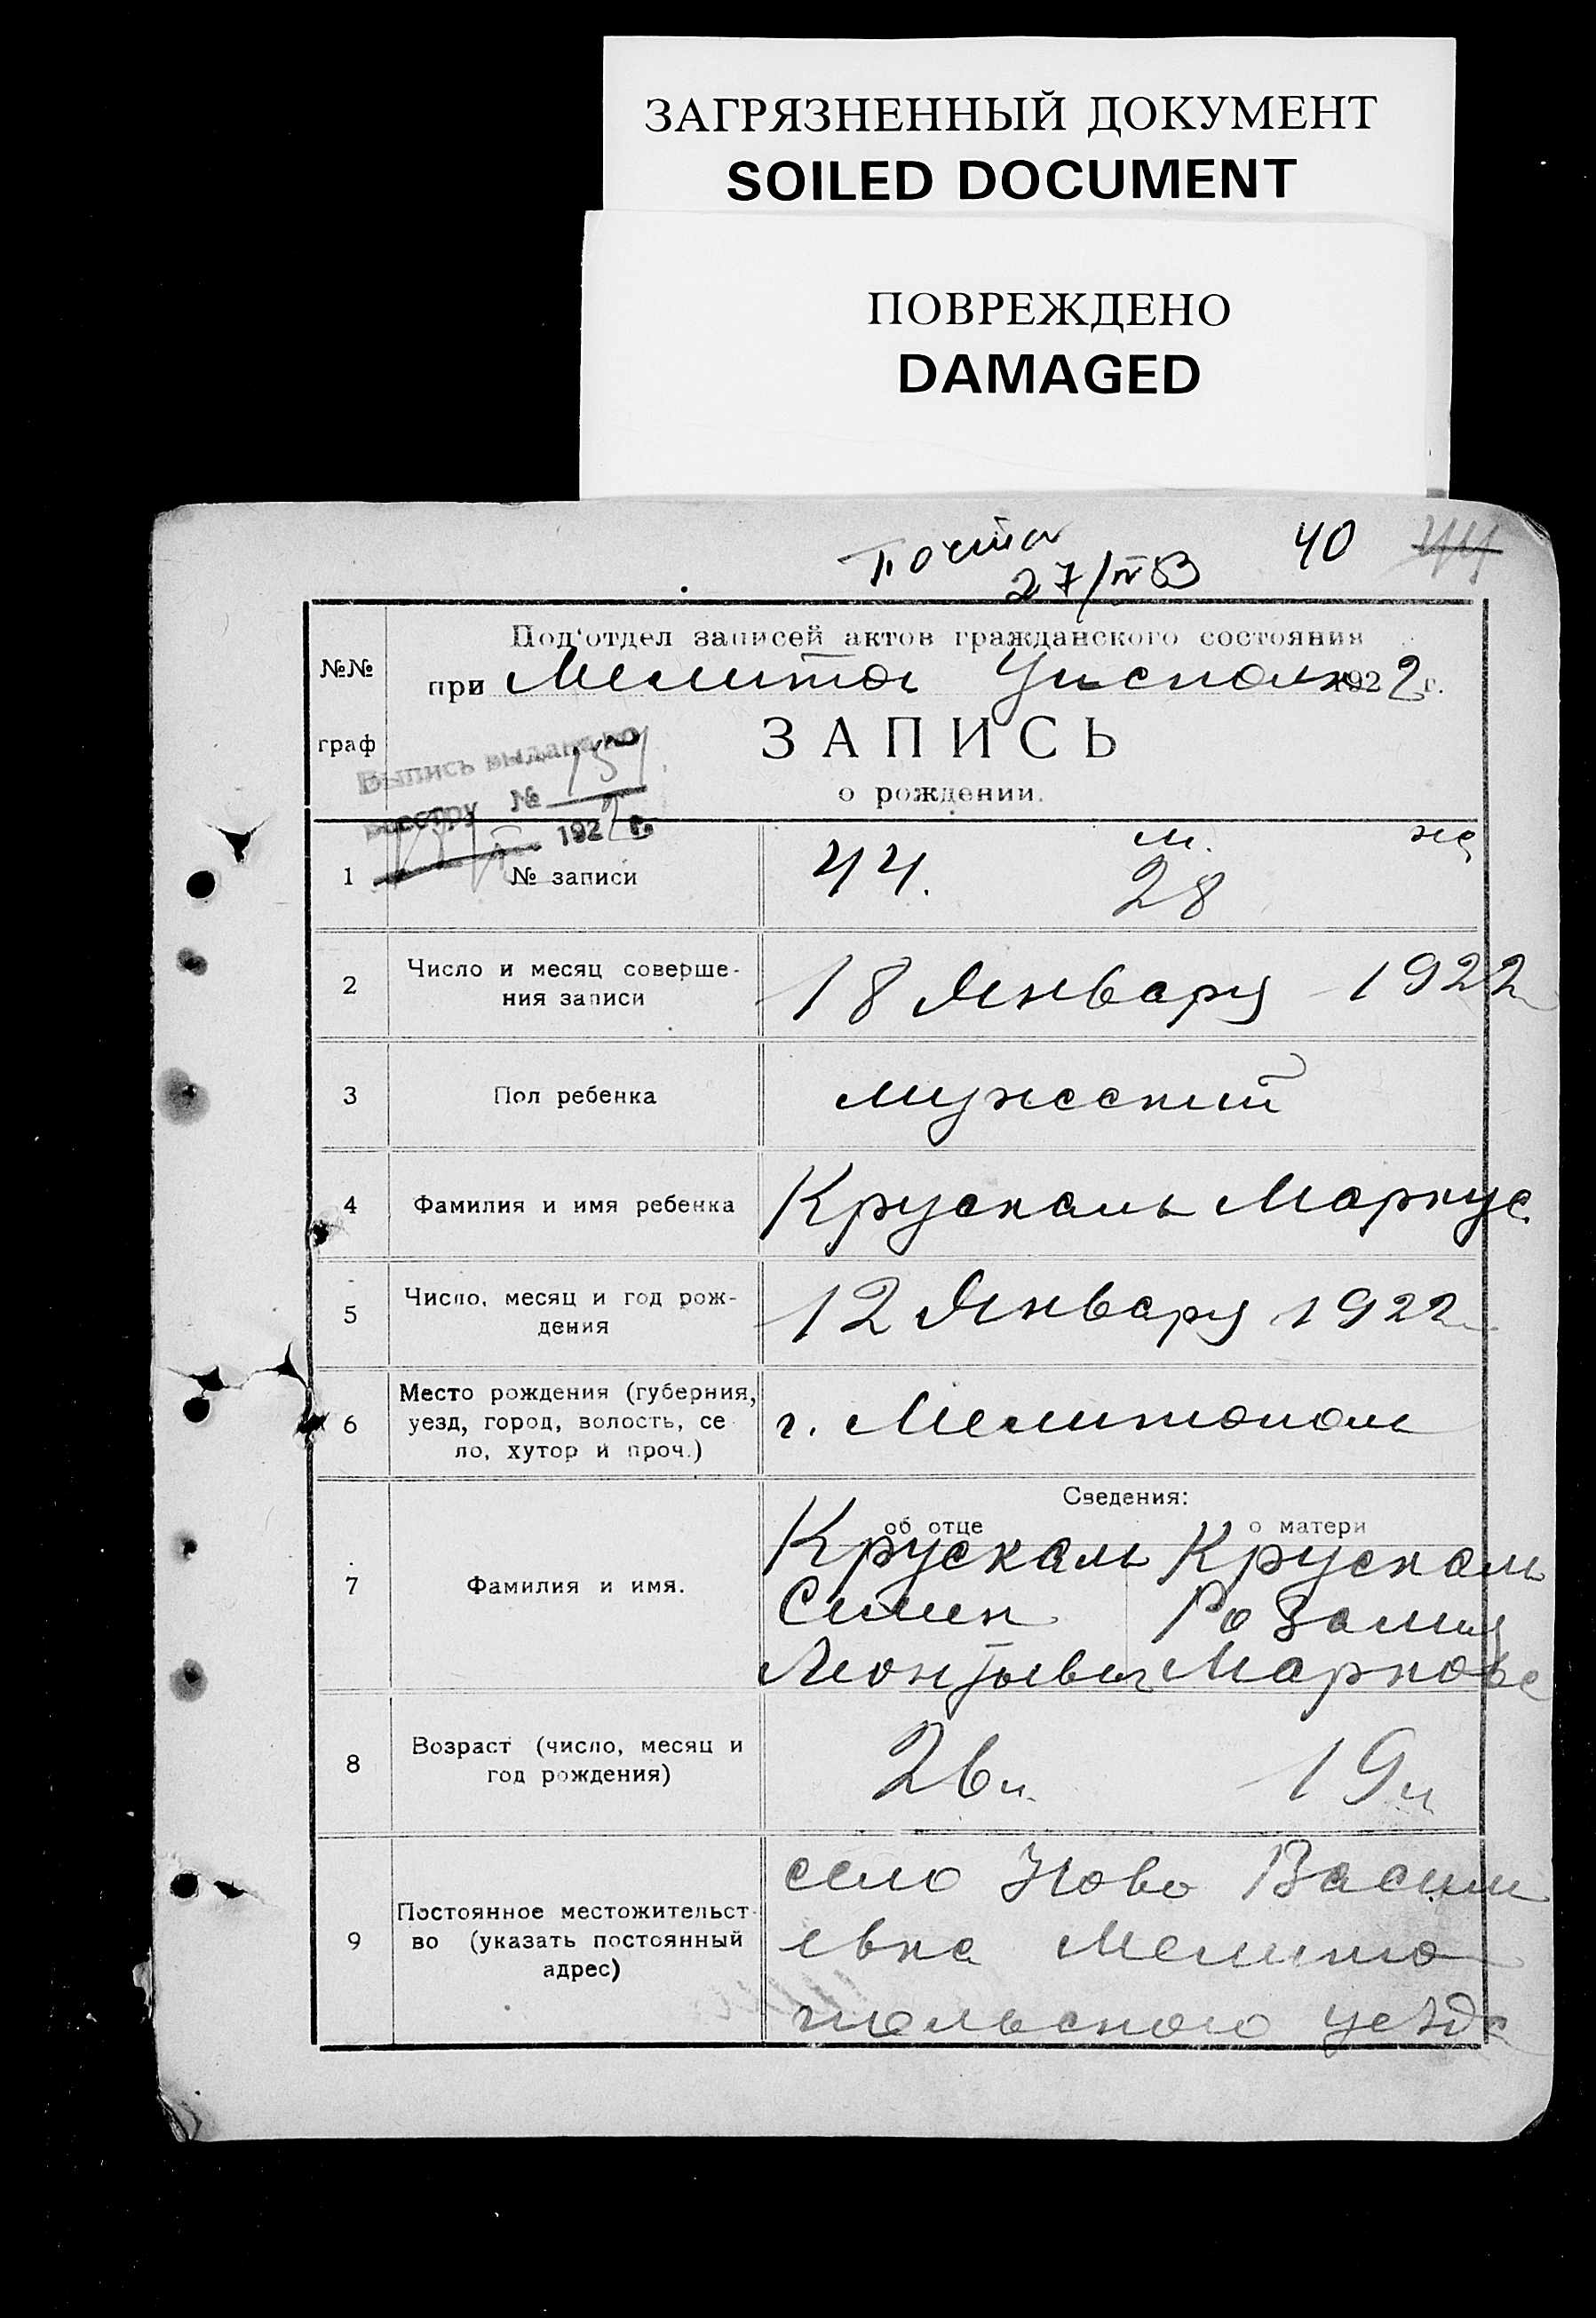 ЗАГРЯЗНЕННЫЙ ДОКУМЕНТ
SOILED DOCUMENT
ПОВРЕЖДЕНО
DAMAGED
40 44
27/IV 53
Под'отдел записей актов гражданского состояния
№№
при Мелитоп Уисполк 1922 г.
граф
ЗАПИСЬ
о рождении.
Выпись выдана по
реестру № 151
192 г.
м. ж
1 № записи 44. 28
2 Число и месяц соверше-
ния записи
18 Января 1922
3 Пол ребенка мужеский
4 Фамилия и имя ребенка Крускаль Маркус
5 Число, месяц и год рож-
дения
12 Января 1922
6 Место рождения (губерния,
уезд, город, волость, се-
ло, хутор и проч.)
г. Мелитополь
Сведения:
об отце о матери
7 Фамилия и имя.
Крускаль Крускаль
Симен Розалия
Леонтьевич Маркове
8 Возраст (число, месяц и
год рождения)
26 л. 19 л
9 Постоянное местожительст-
во (указать постоянный
адрес)
село Ново Васили
евка Мелито
польского уезда